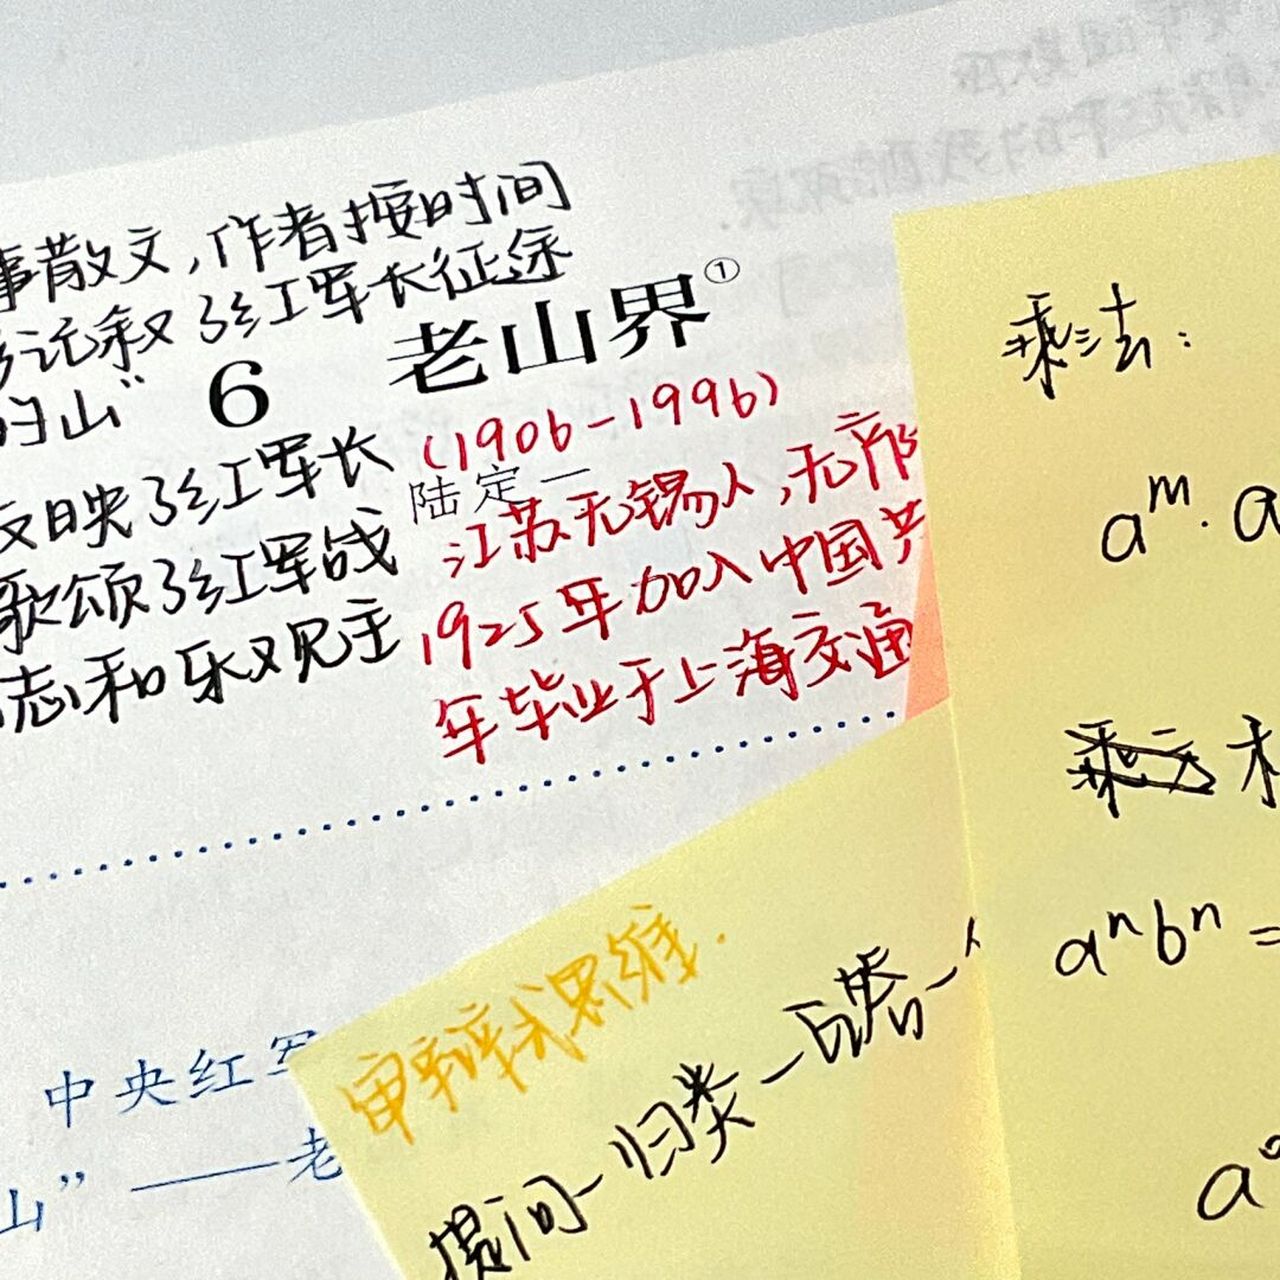 事散文,作者按时间
记叙了红军长征途
的山”
6 老山界①
反映了红军长
歌颂了红军战
志和乐观主
(1906-1996)
陆定一
江苏无锡人,无产
1925年加入中国共
年毕业于上海交通
中央红军
山”——老
审辩式思维.
提问-归类-回答-
乘法:
aᵐ·a
aⁿbⁿ=
a